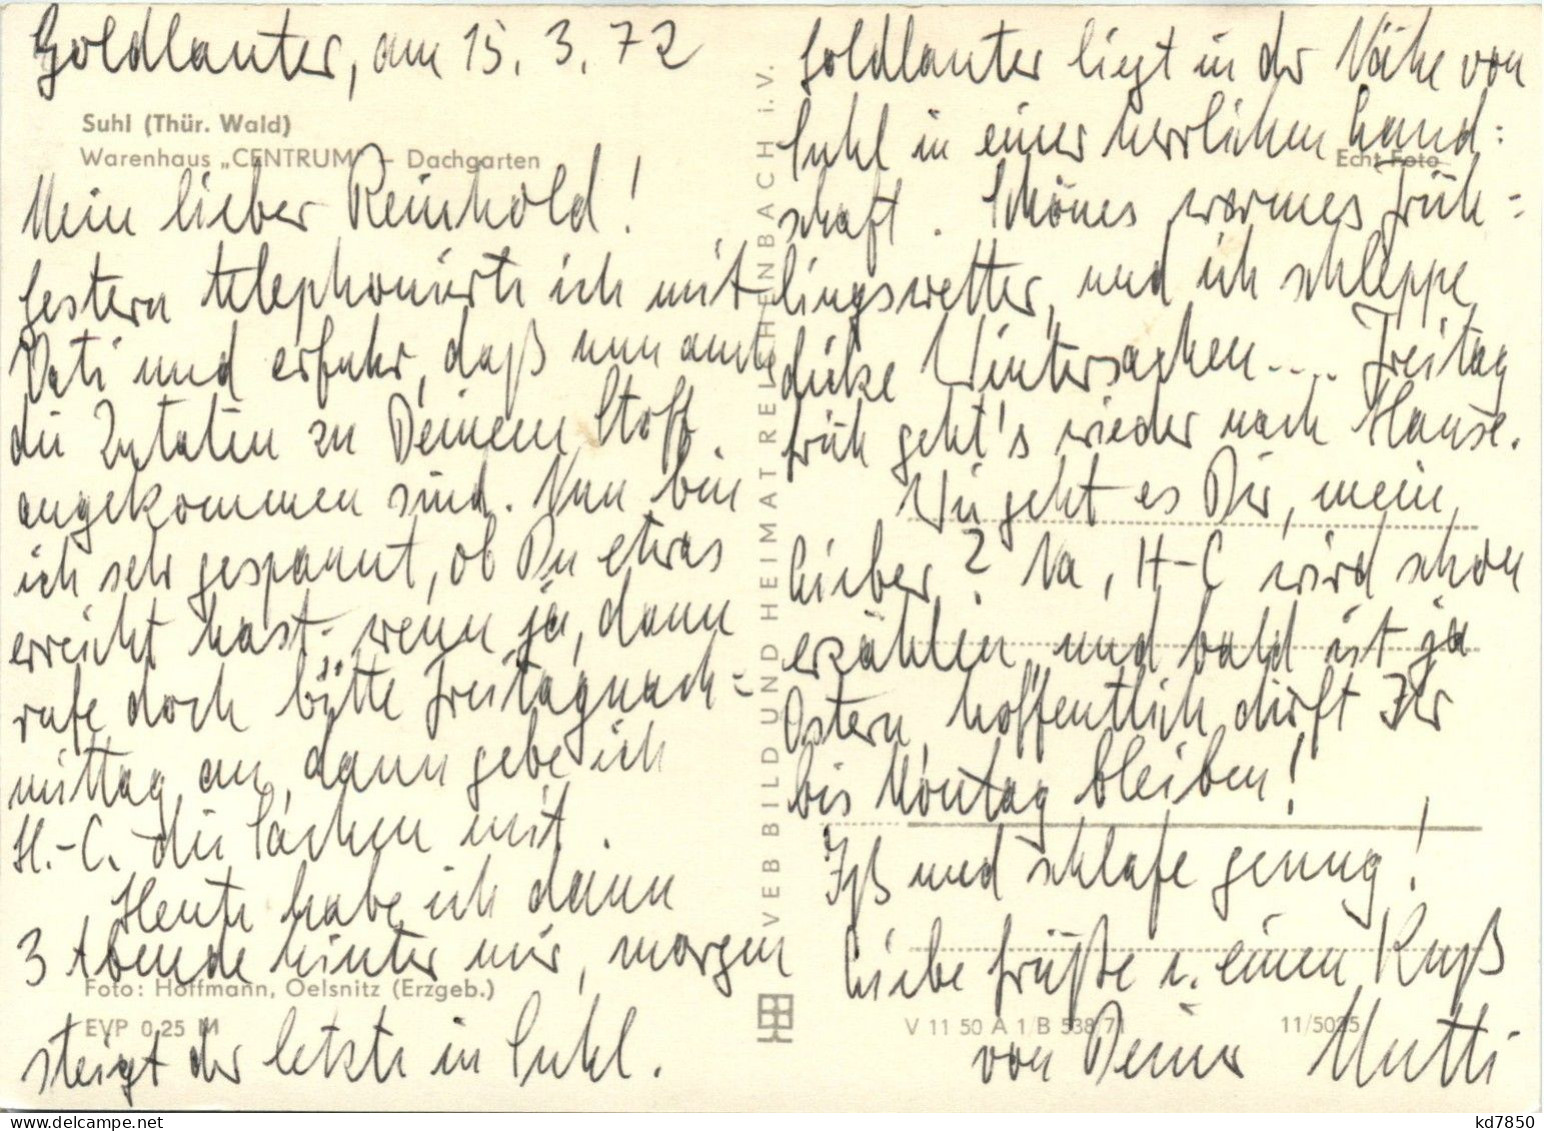 Goldlauter, am 15. 3. 72
Suhl (Thür. Wald)
Warenhaus „CENTRUM“ – Dachgarten
Mein lieber Reinhold!
Gestern telephonierte ich mit
Vati und erfuhr, daß nun auch
die Zutaten zu Deinem Stoff
angekommen sind. Nun bin
ich sehr gespannt, ob Du etwas
erreicht hast - wenn ja, dann
rufe doch bitte Freitagnach=
mittag an, dann gebe ich
H.-C. die Sachen mit.
Heute habe ich dann
3 Abende hinter mir, morgen
Foto: Hoffmann, Oelsnitz (Erzgeb.)
EVP 0,25 M
steigt der letzte in Suhl.
VEB BILD UND HEIMAT REICHENBACH i. V.
Goldlauter liegt in der Nähe von
Suhl in einer herrlichen Land=
Echt Foto
schaft. Schönes warmes Früh=
lingswetter, und ich schleppe
dicke Wintersachen.... Freitag
früh geht's wieder nach Hause.
Wie geht es Dir, mein
Lieber? Na, H-C wird schon
erzählen, und bald ist ja
Ostern, hoffentlich dürft Ihr
bis Montag bleiben!
Iß und schlafe genug!
Liebe Grüße u. einen Kuß
V 11 50 A 1/B 538/71 11/5025
von Deiner Mutti
kd7850